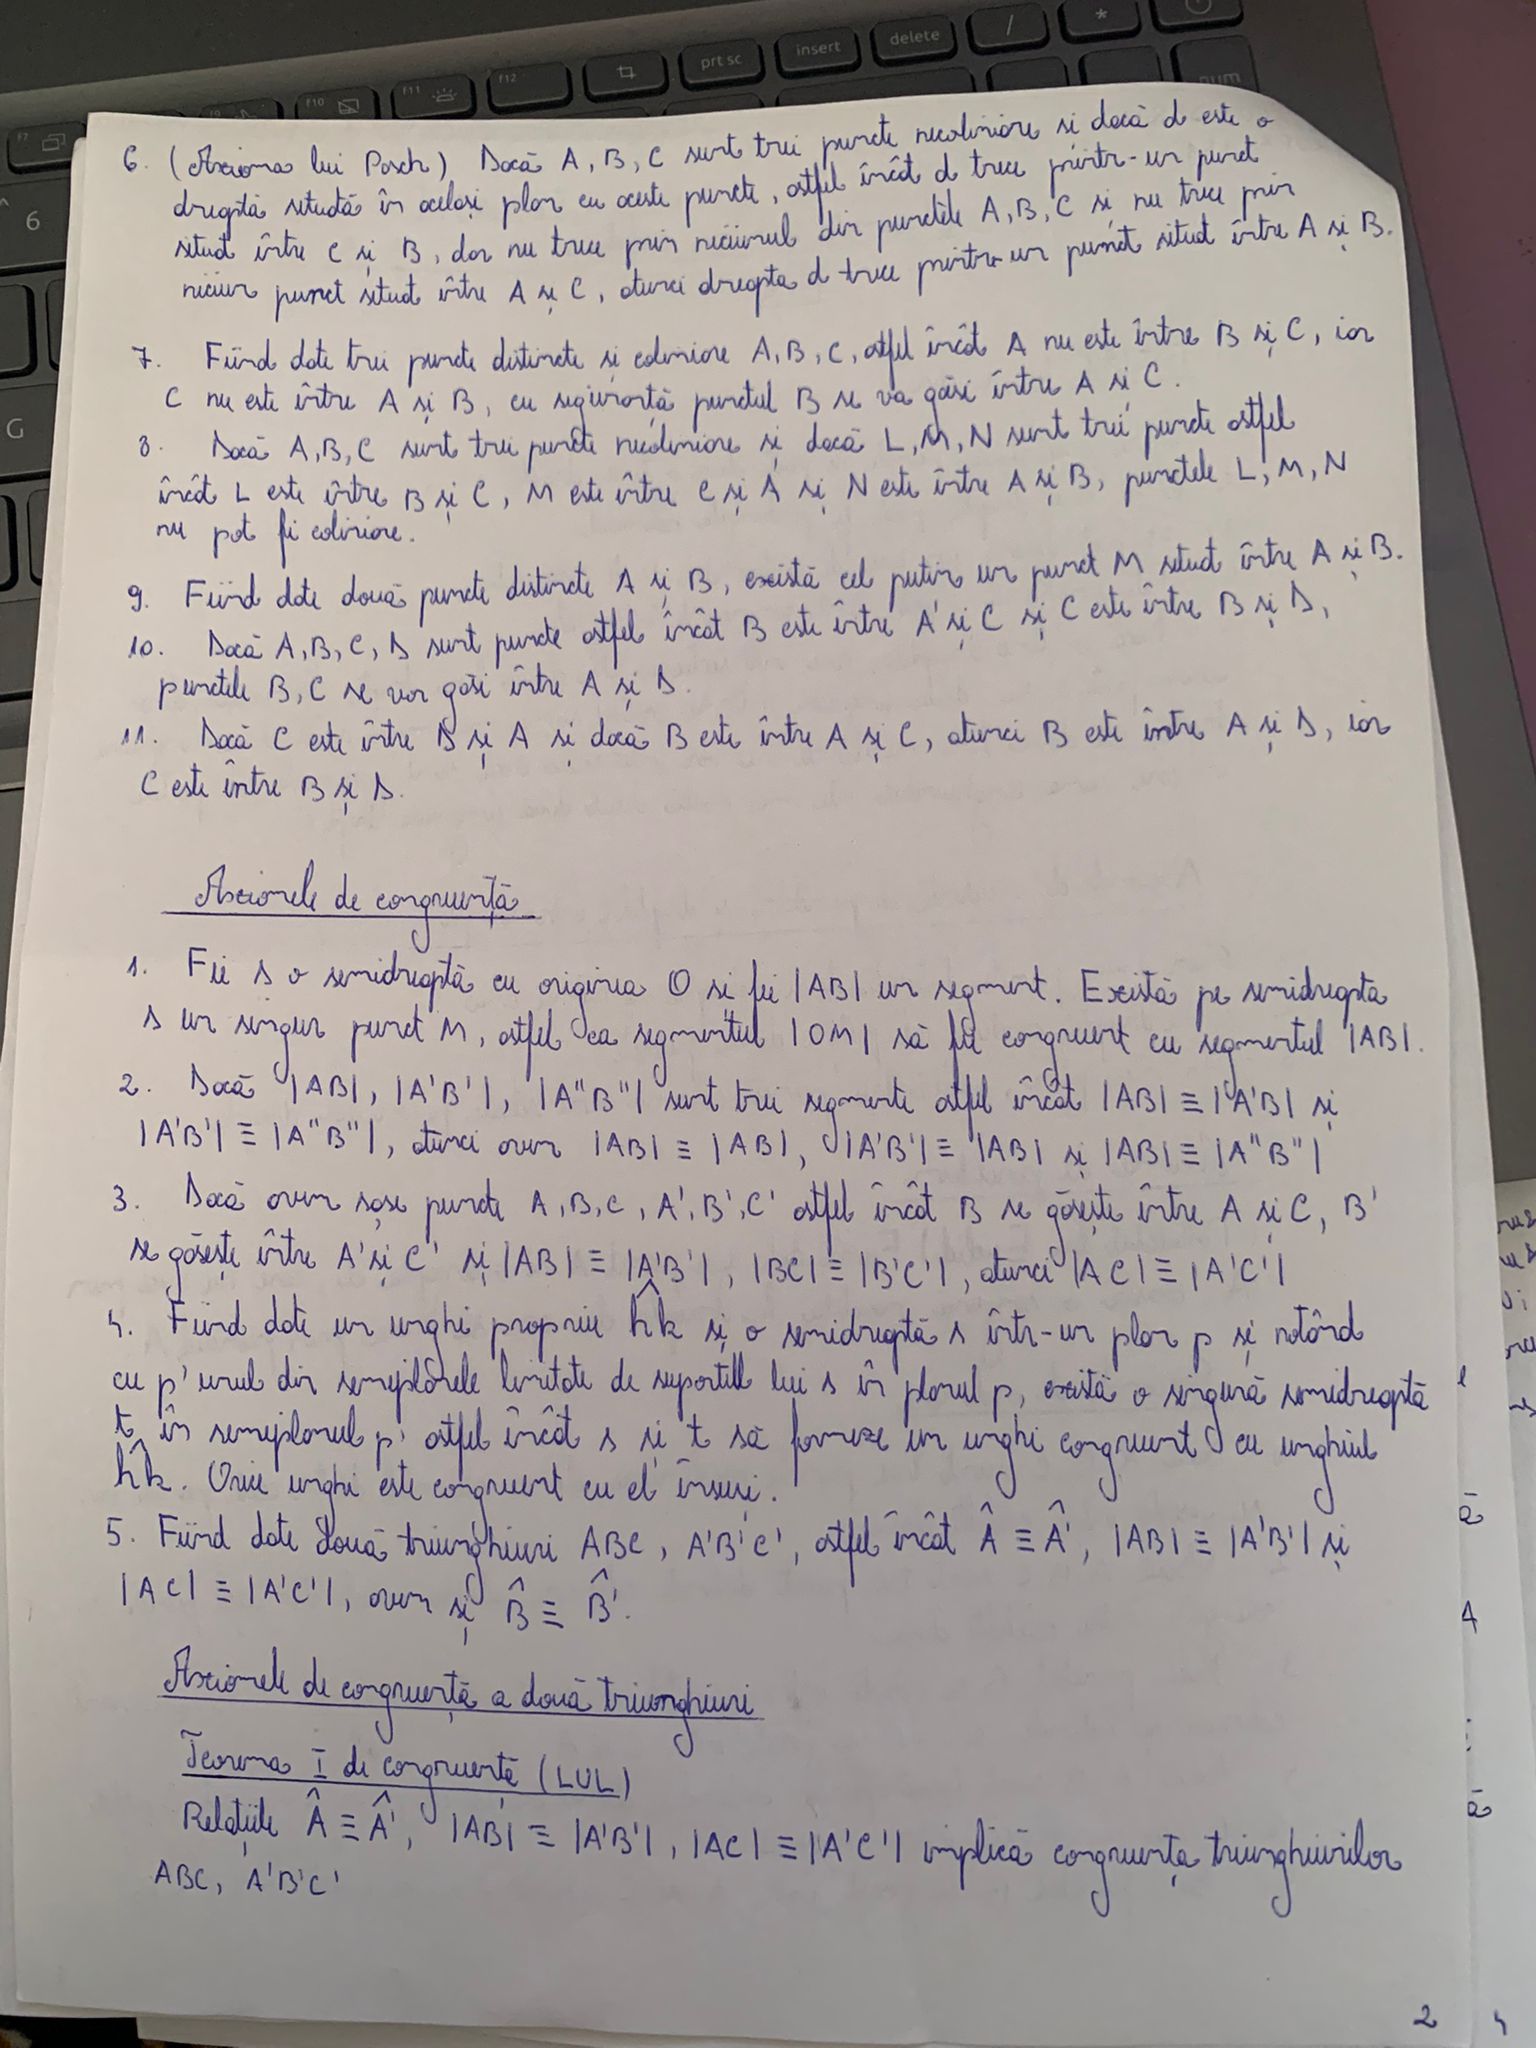 prt sc
insert
delete
/
*
F7
F10
F11
F12
num
6
G
6. (Axioma lui Pasch) Dacă A, B, C sunt trei puncte necoliniare și dacă d este o
dreaptă situată în același plan cu aceste puncte, astfel încât d trece printr-un punct
situat între C și B, dar nu trece prin niciunul din punctele A, B, C și nu trece prin
niciun punct situat între A și C, atunci dreapta d trece printr-un punct situat între A și B.
7. Fiind date trei puncte distincte și coliniare A, B, C, astfel încât A nu este între B și C, iar
C nu este între A și B, cu siguranță punctul B se va găsi între A și C.
8. Dacă A, B, C sunt trei puncte necoliniare și dacă L, M, N sunt trei puncte astfel
încât L este între B și C, M este între C și A și N este între A și B, punctele L, M, N
nu pot fi coliniare.
9. Fiind date două puncte distincte A și B, există cel puțin un punct M situat între A și B.
10. Dacă A, B, C, D sunt puncte astfel încât B este între A și C și C este între B și D,
punctele B, C se vor găsi între A și D.
11. Dacă C este între D și A și dacă B este între A și C, atunci B este între A și D, iar
C este între B și D.
Axiomele de congruență
1. Fie s o semidreaptă cu originea O și fie |AB| un segment. Există pe semidreapta
s un singur punct M, astfel ca segmentul |OM| să fie congruent cu segmentul |AB|.
2. Dacă |AB|, |A'B'|, |A"B"| sunt trei segmente astfel încât |AB| ≡ |A'B| și
|A'B'| ≡ |A"B"|, atunci avem |AB| ≡ |AB|, |A'B'| ≡ |AB| și |AB| ≡ |A"B"|
3. Dacă avem șase puncte A, B, C, A', B', C' astfel încât B se găsește între A și C, B'
se găsește între A' și C' și |AB| ≡ |A'B'|, |BC| ≡ |B'C'|, atunci |AC| ≡ |A'C'|
4. Fiind date un unghi propriu ĥk și o semidreaptă s într-un plan p și notând
cu p' unul din semiplanele limitate de suportul lui s în planul p, există o singură semidreaptă
t în semiplanul p' astfel încât s și t să formeze un unghi congruent cu unghiul
ĥk. Orice unghi este congruent cu el însuși.
5. Fiind date două triunghiuri ABC, A'B'C', astfel încât Â ≡ Â', |AB| ≡ |A'B'| și
|AC| ≡ |A'C'|, avem și B̂ ≡ B̂'.
Axiomele de congruență a două triunghiuri
Teorema I de congruență (LUL)
Relațiile Â ≡ Â', |AB| ≡ |A'B'|, |AC| ≡ |A'C'| implică congruența triunghiurilor
ABC, A'B'C'
2
4